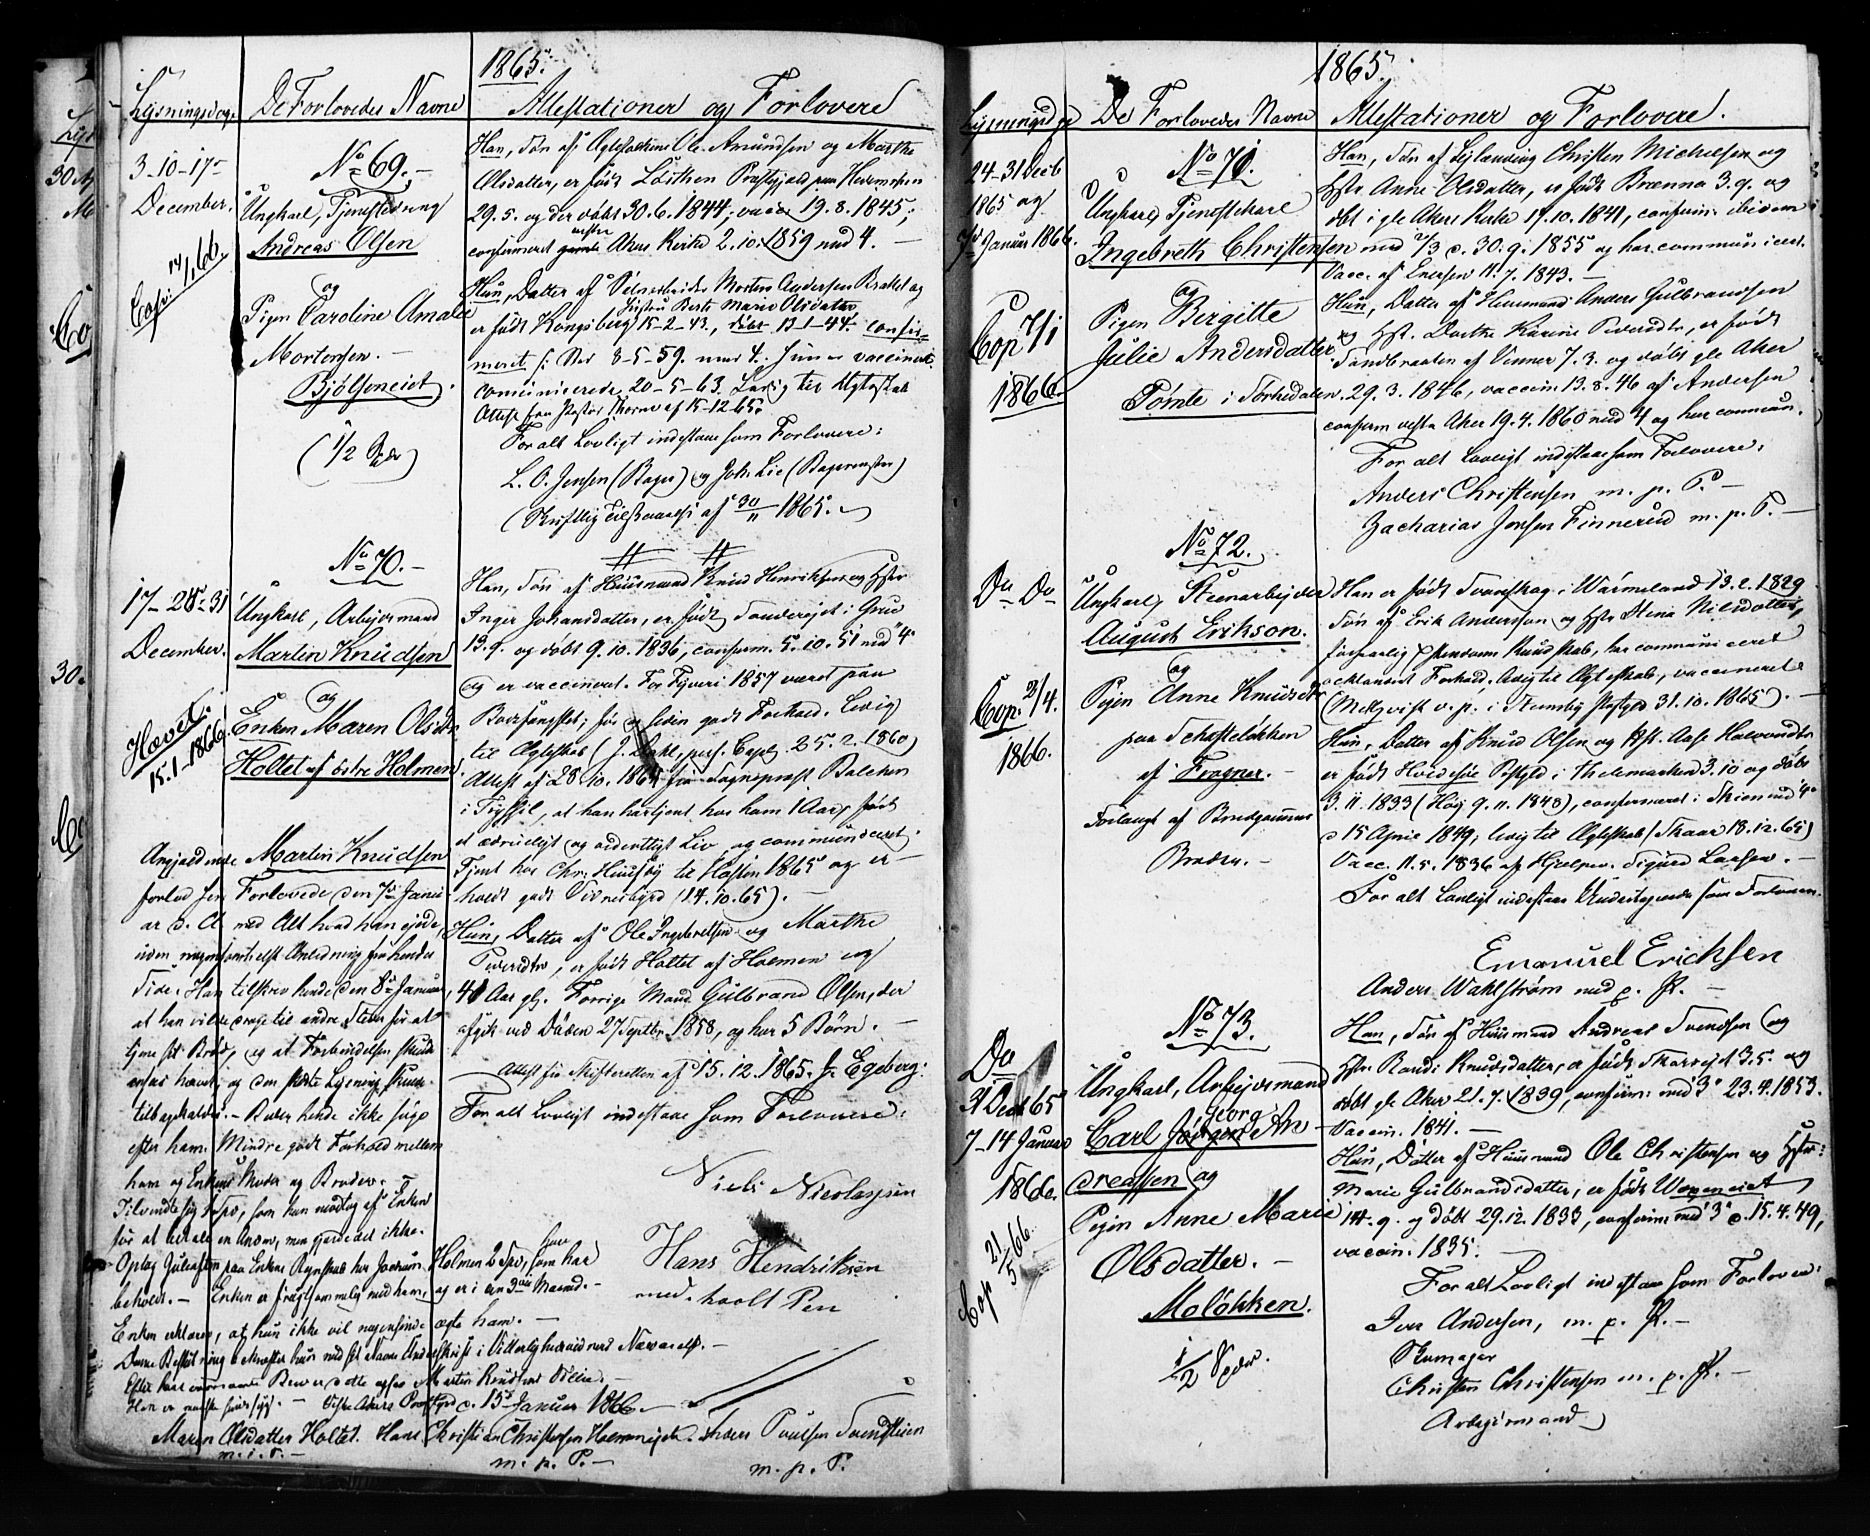 1865.
Lysningsdag. De Forlovedes Navne Attestationer og Forlovere
3-10-17de
December.
Cop: 14/1 66.
No 69.
Ungkarl, Tjenestedreng
Andreas Olsen
og
Pigen Caroline Amalie
Mortensen.
Bjölseneiet.
(1/2 Spdlr)
Han, Søn af Ole Amundsen og Marthe
Olsdatter, er født Løithen Præstegjeld paa Hedemarken
29.5. og der døbt 30.6.1844; vacc. 19.8.1845;
confirmeret gamle vestre Akers Kirke 2.10.1859 med 4.
Hun, Datter af Morten Andersen og
Hustru Berte Marie Olsdatter
er født Kongsberg 15-2-43, døbt 13-1-44. confir-
meret 8-5-59. med 4. vaccineret
communicerede 20-5-63. Ledig til Ægteskab
Attest fra Pastor af 15-12-65.
For alt Lovligt indestaae som Forlovere:
L. O. Jensen (Bager) og Joh. Lie (Bagermester)
(Skriftlig af 30/11 1865.
No 70.
17-26-31
December.
Hævet.
15.1-1866.
Ungkarl, Arbejdsmand
Martin Knudsen
og
Enken Maren Olsdtr
Holtet af østre Holmen
Han, Søn af Huusmand Knud Henriksen og Hstr
Inger Johansdatter, er født Sanderejet i Grue
13.9. og døbt 9.10.1836, confirm. 5.10.51 med "4"
og er vaccineret. For Tyveri 1857 været paa
Bodsfængslet; før og siden godt Forhold. Ledig
til Ægteskab (J. Dahl, pers. Capl. 25.2.1860)
Attest af 28.10.1864 fra Sognepræst Balchen
i Trysil, at han har tjent hos ham 1 Aar, ført
et ædrueligt og ordentligt Liv og communiceret.
Tjent hos Chr. Huusby til Høsten 1865 og er-
holdt godt Vidnesbyrd (14.10.65).
Hun, Datter af Ole Ingebretsen og Marthe
Pedersdtr, er født Holtet af Holmen og
41 Aar gl. Forrige Mand Gulbrand Olsen, der
afgik ved Døden 27 Septbr. 1858, og har 5 Børn.
Attest fra Skifteretten af 15.12.1865. Egeberg.
For alt Lovligt indestaae som Forlovere:
Niels Nicolaysen
Hans Hendriksen
med holdt Pen
Angjældende Martin Knudsen
forlod sin Forlovede den 7de Janu-
ar d. A. med Alt hvad han ejede,
uden nogensomhelst Anledning fra hendes
Side. Han tilskrev hende den 8de Januar,
at han vilde drage til andre Steder for at
tjene sit Brød, og at Forbindelsen skulde
ansees hævet, og den sidste Lysning skulde
tilbagekaldes. Beder hende ikke søge
efter ham. Mindre godt Forhold mellem
ham og Enkens Moder og Broder.
Tilvendte sig 4 Spd, som han modtog af Enken
for at betale en Anden, men gjorde det ikke.
Optog Juleaften paa Enkens Regnskab hos Joachim Holmen 2 Spd, som han har
beholdt. Enken er frugtsommelig med ham, og er i den 3die Maaned.
Enken erklærer, at hun ikke vil nogensinde ægte ham.
Denne Beslutning bekræfter hun med sit Navns Underskrift i Vitterlighedsvidners Nærværelse.
Vestre Akers Præstegd d. 15de Januar 1866.
Maren Olsdatter Holtet. Hans Christian Christensen Holmenejet. Anders Poulsen Svendstuen
m. p. P. m. p. P.
1865.
Lysningsdage De Forlovedes Navne Attestationer og Forlovere.
24-31 Decb
1865 og
7de Januar 1866.
Cop 7/1
1866.
No 71.
Ungkarl, Tjenestekarl
Ingebreth Christensen
og
Pigen Birgitte
Julie Andersdatter
Tømte i Sørkedalen.
Han, Søn af Christen Michelsen og
Hstr Anne Olsdatter, er født Brenna 3.9. og
døbt i gle Akers Kirke 17.10.1841, confirm. ibidem
med 2/3 d. 30.9.1855 og har communiceret.
Vacc. af Enersen 11.7.1843.
Hun, Datter af Huusmand Anders Gulbrandsen
og Hst. Dorthe Karine Pedersdtr, er født
Sandbraaten af Vinner 7.3. og døbt gle Aker
29.3.1846, vaccin. 13.8.46 af Andersen
confirm vestre Aker 19.4.1860 med 4 og har commun.
For alt Lovligt indestaae som Forlovere:
Anders Christensen m. p. P.
Zacharias Jensen Finnerud m. p. P.
No 72.
Do Do
Cop. 2/4.
1866.
Ungkarl, Steenarbejder
August Erikson.
og
Pigen Anne Knudsdtr
paa Schafteløkken
af Frogner.
Forlangt af Brudgommens
Broder.
Han er født Svanskog i Wärmeland 13.2.1829
Søn af Erik Andersson og Hstr Stina Nilsdotter,
forsvarlig Christendoms Kundskab, har communiceret
og Forhold, ledig til Ægteskab, vaccineret
(Mellqvist v. p. i 31.10.1865).
Hun, Datter af Knud Olsen og Hst. Aase Halvorsdtr
er født Hvidesøe Pstgjld i Thelemarken 3.10 og døbt
3.11.1833 (Høj 9.11.1848), confirmeret i Skien med "4"
d 15 April 1849; ledig til Ægteskab (Skaar 18.12.65)
Vacc. 11.5.1836 af Hjælpev. Sigurd Larsen.
For alt Lovligt indestaae Undertegnede som Forlovere.
Emanuel Erichsen
Anders Wahlstrøm med p. P.
No 73.
Do
31 Decb 65
7-14 Januar
1866.
Cop 21/5 66.
Ungkarl, Arbejdsmand
Carl Jørgen Georg An-
dreassen og
Pigen Anne Marie
Olsdatter.
Moløkken.
1/2 Spdlr.
Han, Søn af Huusmand Andreas Svendsen og
Hstr Randi Knudsdatter, er født 3.5. og
døbt gle Aker 21.7.1839, confirm. med "3" 23.4.1853.
Vaccin. 1841.
Hun, Datter af Huusmand Ole Christensen og Hstr:
Marie Gulbrandsdatter, er født
14.9. og døbt 29.12.1833, confirm. med "3" d. 15.4.49,
vaccin. 1835.
For alt Lovligt indestaae som Forlovere:
Iver Andersen, m. p. P.
Skomager
Christen Christensen m. p. P.
Arbejdsmand